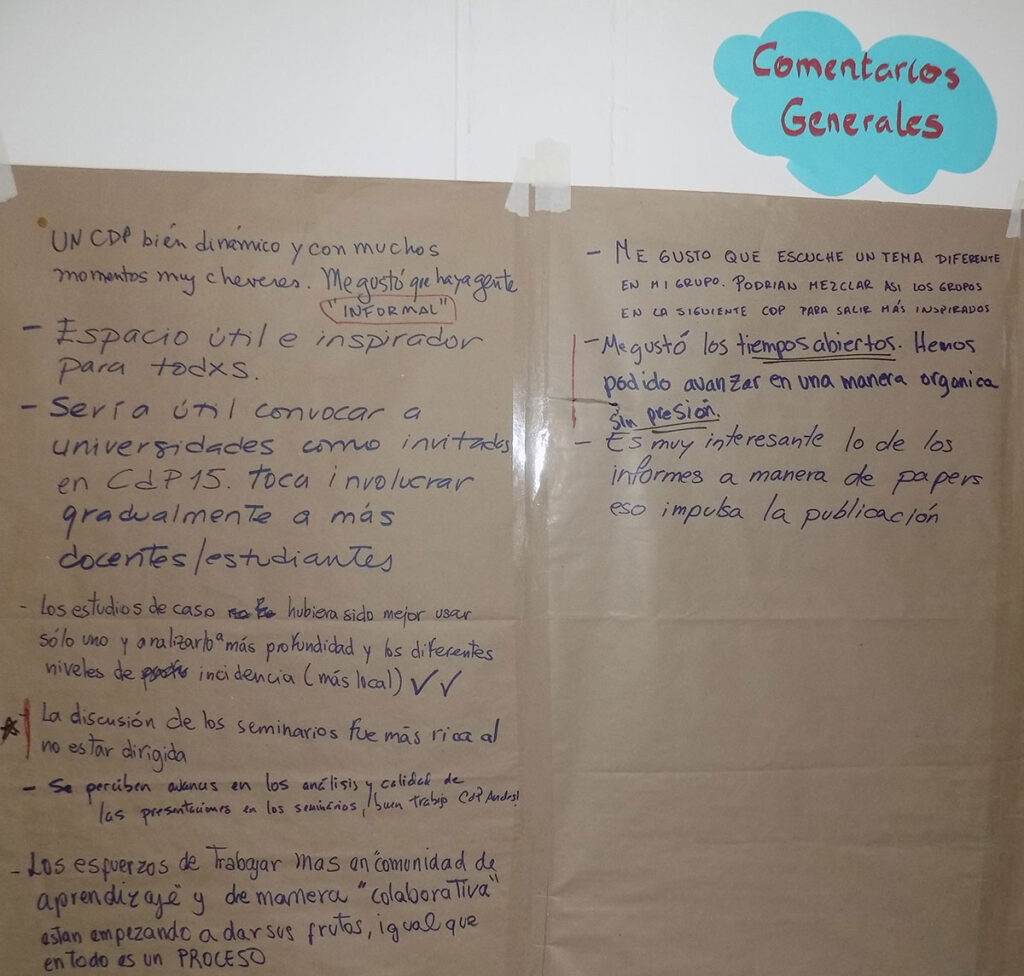 Comentarios
Generales
UN CDP bién dinámico y con muchos
momentos muy cheveres. Me gustó que haya gente
"INFORMAL"
- Espacio útil e inspirador
para todxs.
- Sería útil convocar a
universidades como invitadas
en CdP15. toca involucrar
gradualmente a más
docentes/estudiantes
- Los estudios de caso hubiera sido mejor usar
sólo uno y analizarlo a más profundidad y los diferentes
niveles de incidencia (más local) ✓✓
- La discusión de los seminarios fue más rica al
no estar dirigida
- Se perciben avances en los análisis y calidad de
las presentaciones en los seminarios, buen trabajo CdP Andes!
- Los esfuerzos de Trabajar mas en "comunidad de
aprendizaje" y de manera "colaborativa"
estan empezando a dar sus frutos, igual que
en todo es un PROCESO
- ME GUSTO QUE ESCUCHE UN TEMA DIFERENTE
EN MI GRUPO. PODRIAN MEZCLAR ASI LOS GROPOS
EN LA SIGUIENTE COP PARA SALIR MÁS INSPIRADOS
- Me gustó los tiempos abiertos. Hemos
podido avanzar en una manera organica
sin presión.
- Es muy interesante lo de los
informes a manera de papers
eso impulsa la publicación